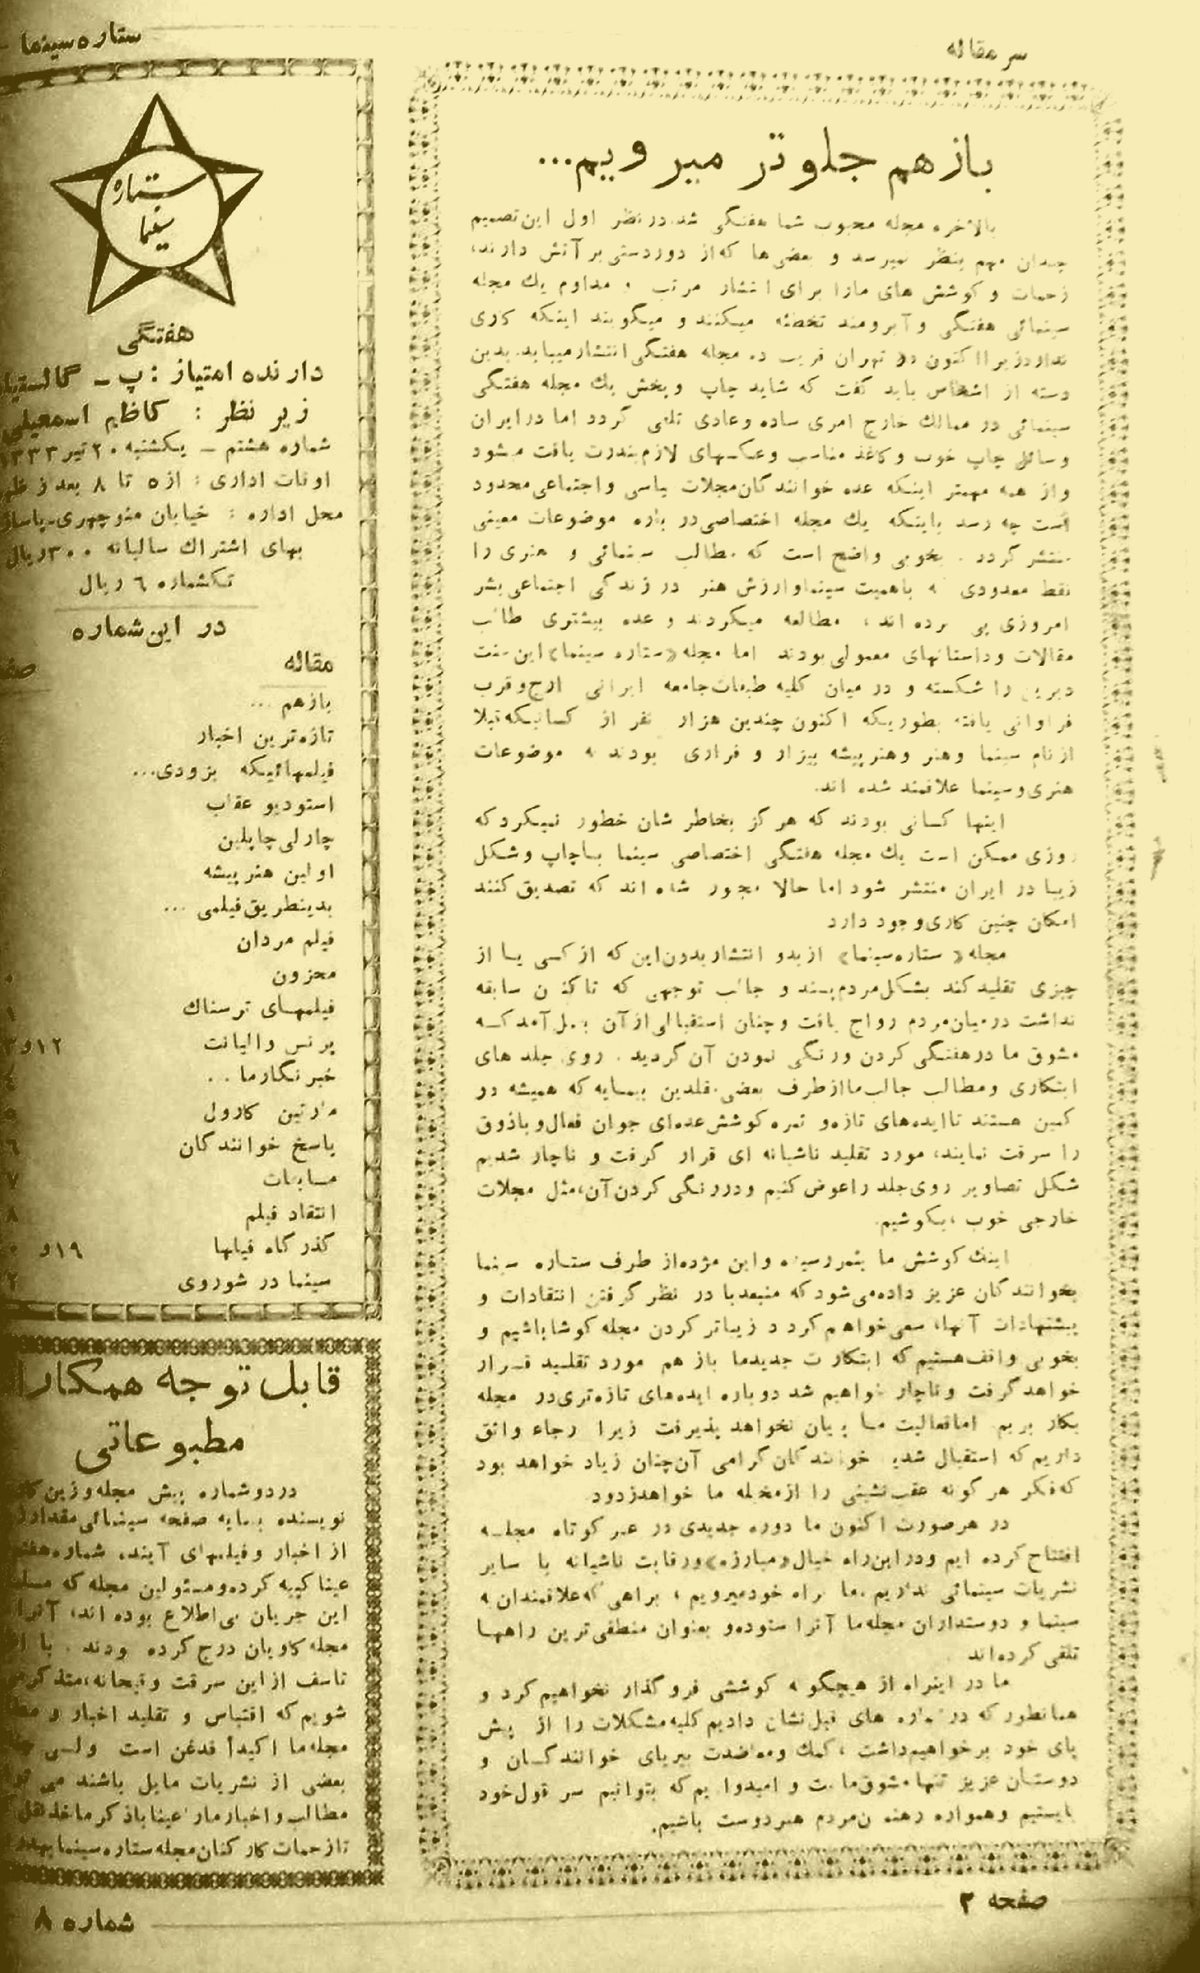 سر مقاله
باز هم جلو تر میرویم...
بالاخره مجله محبوب شما هفتگی شد. در نظر اول این تصمیم
چندان مهم بنظر نمیرسد و بعضی‌ها که از دور دستی بر آتش دارند،
زحمات و کوشش های ما را برای انتشار مرتب و مداوم یك مجله
سینمائی هفتگی و آبرومند تخطئه میکنند و میگویند اینکه کاری
ندارد زیرا اکنون در تهران قریب ده مجله هفتگی انتشار مییابد. بدین
دسته از اشخاص باید گفت که شاید چاپ و پخش یك مجله هفتگی
سینمائی در ممالك خارج امری ساده و عادی تلقی گردد اما در ایران
وسائل چاپ خوب و کاغذ مناسب و عکسهای لازم بندرت یافت میشود
و از همه مهمتر اینکه عده خوانندگان مجلات سیاسی و اجتماعی محدود
است چه رسد باینکه یك مجله اختصاصی در باره موضوعات معینی
منتشر گردد . بخوبی واضح است که مطالب سینمائی و هنری را
فقط معدودی که باهمیت سینما و ارزش هنر در زندگی اجتماعی بشر
امروزی پی برده اند ، مطالعه میکردند و عده بیشتری طالب
مقالات و داستانهای معمولی بودند اما مجله «ستاره سینما» این سنت
دیرین را شکسته و در میان کلیه طبقات جامعه ایرانی ارج و قرب
فراوانی یافته بطوریکه اکنون چندین هزار نفر از کسانیکه قبلا
از نام سینما و هنر و هنرپیشه بیزار و فراری بودند به موضوعات
هنری و سینما علاقمند شده اند.
اینها کسانی بودند که هرگز بخاطر شان خطور نمیکرد که
روزی ممکن است یك مجله هفتگی اختصاصی سینما با چاپ و شکل
زیبا در ایران منتشر شود اما حالا مجبور شده اند که تصدیق کنند
امکان چنین کاری وجود دارد
مجله «ستاره سینما» از بدو انتشار بدون این که از کسی یا از
چیزی تقلید کند بشکل مردم پسند و جالب توجهی که تاکنون سابقه
نداشت در میان مردم رواج یافت و چنان استقبالی از آن بعمل آمد که
مشوق ما در هفتگی کردن و رنگی نمودن آن گردید . روی جلد های
ابتکاری و مطالب جالب ما از طرف بعضی مقلدین بیمایه که همیشه در
کمین هستند تا ایده‌های تازه و ثمره کوشش عده‌ای جوان فعال و باذوق
را سرقت نمایند، مورد تقلید ناشیانه ای قرار گرفت و ناچار شدیم
شکل تصاویر روی جلد را عوض کنیم و در رنگی کردن آن، مثل مجلات
خارجی خوب ، بکوشیم.
اینك کوشش ما بثمر رسیده و این مژده از طرف ستاره سینما
بخوانندگان عزیز داده می‌شود که منبعد با در نظر گرفتن انتقادات و
پیشنهادات آنها، سعی خواهیم کرد در زیباتر کردن مجله کوشا باشیم و
بخوبی واقف هستیم که ابتکارات جدید ما باز هم مورد تقلید قرار
خواهد گرفت و ناچار خواهیم شد دوباره ایده‌های تازه‌تری در مجله
بکار بریم. اما فعالیت ما پایان نخواهد پذیرفت زیرا رجاء واثق
داریم که استقبال شدید خوانندگان گرامی آن چنان زیاد خواهد بود
که فکر هر گونه عقب نشینی را از مخیله ما خواهد زدود.
در هر صورت اکنون ما دوره جدیدی در عمر کوتاه مجله
افتتاح کرده ایم و در این راه خیال «مبارزه» و رقابت ناشیانه با سایر
نشریات سینمائی نداریم. ما براه خود میرویم ، براهی که علاقمندان به
سینما و دوستداران مجله ما آنرا ستوده و بعنوان منطقی‌ترین راهها
تلقی کرده‌اند
ما در اینراه از هیچگونه کوششی فروگذار نخواهیم کرد و
همانطور که در شماره های قبل نشان دادیم کلیه مشکلات را از پیش
پای خود بر خواهیم داشت ، کمك و معاضدت بیریای خوانندگان و
دوستان عزیز تنها مشوق ماست و امیدواریم که بتوانیم سر قول خود
بایستیم و همواره رهنمون مردم هنردوست باشیم.
صفحه ۲
ستاره سینما
ستاره
سینما
هفتگی
دارنده امتیاز : پ - گالستیان
زیر نظر : کاظم اسمعیلی
شماره هشتم - یکشنبه ۲۰ تیر ۱۳۳۳
اوقات اداری : از ۵ تا ۸ بعد از ظهر
محل اداره : خیابان منوچهری-پاساژ
بهای اشتراك سالیانه ۳۰۰ ریال
تکشماره ۶ ریال
در این شماره
مقاله
بازهم ...
تازه‌ترین اخبار
فیلمهائیکه بزودی...
استودیو عقاب
چارلی چاپلین
اولین هنرپیشه
بدینطریق فیلمی ...
فیلم مردان
محزون
فیلمهای ترسناك
پرنس والیانت ۱۲و
خبرنگار ما ...
مارتین کارول
پاسخ خوانندگان
مسابقات
انتقاد فیلم
گذرگاه فیلمها ۱۹و
سینما در شوروی
قابل توجه همکاران
مطبوعاتی
در دو شماره پیش مجله وزین
نویسنده بیمایه صفحه سینمائی مقداری
از اخبار و فیلمهای آینده شماره هفتم
عینا کپیه کرده و مسئولین مجله که مسلما
این جریان بی اطلاع بوده اند، آنرا
مجله کاویان درج کرده بودند . با
تاسف از این سرقت وقیحانه، متذکر
شویم که اقتباس و تقلید اخبار و
مجله ما اکیداً قدغن است ولی
بعضی از نشریات مایل باشند می
مطالب و اخبار ما را عینا با ذکر ماخذ نقل
تا زحمات کارکنان مجله ستاره سینما بهدر
شماره ۸